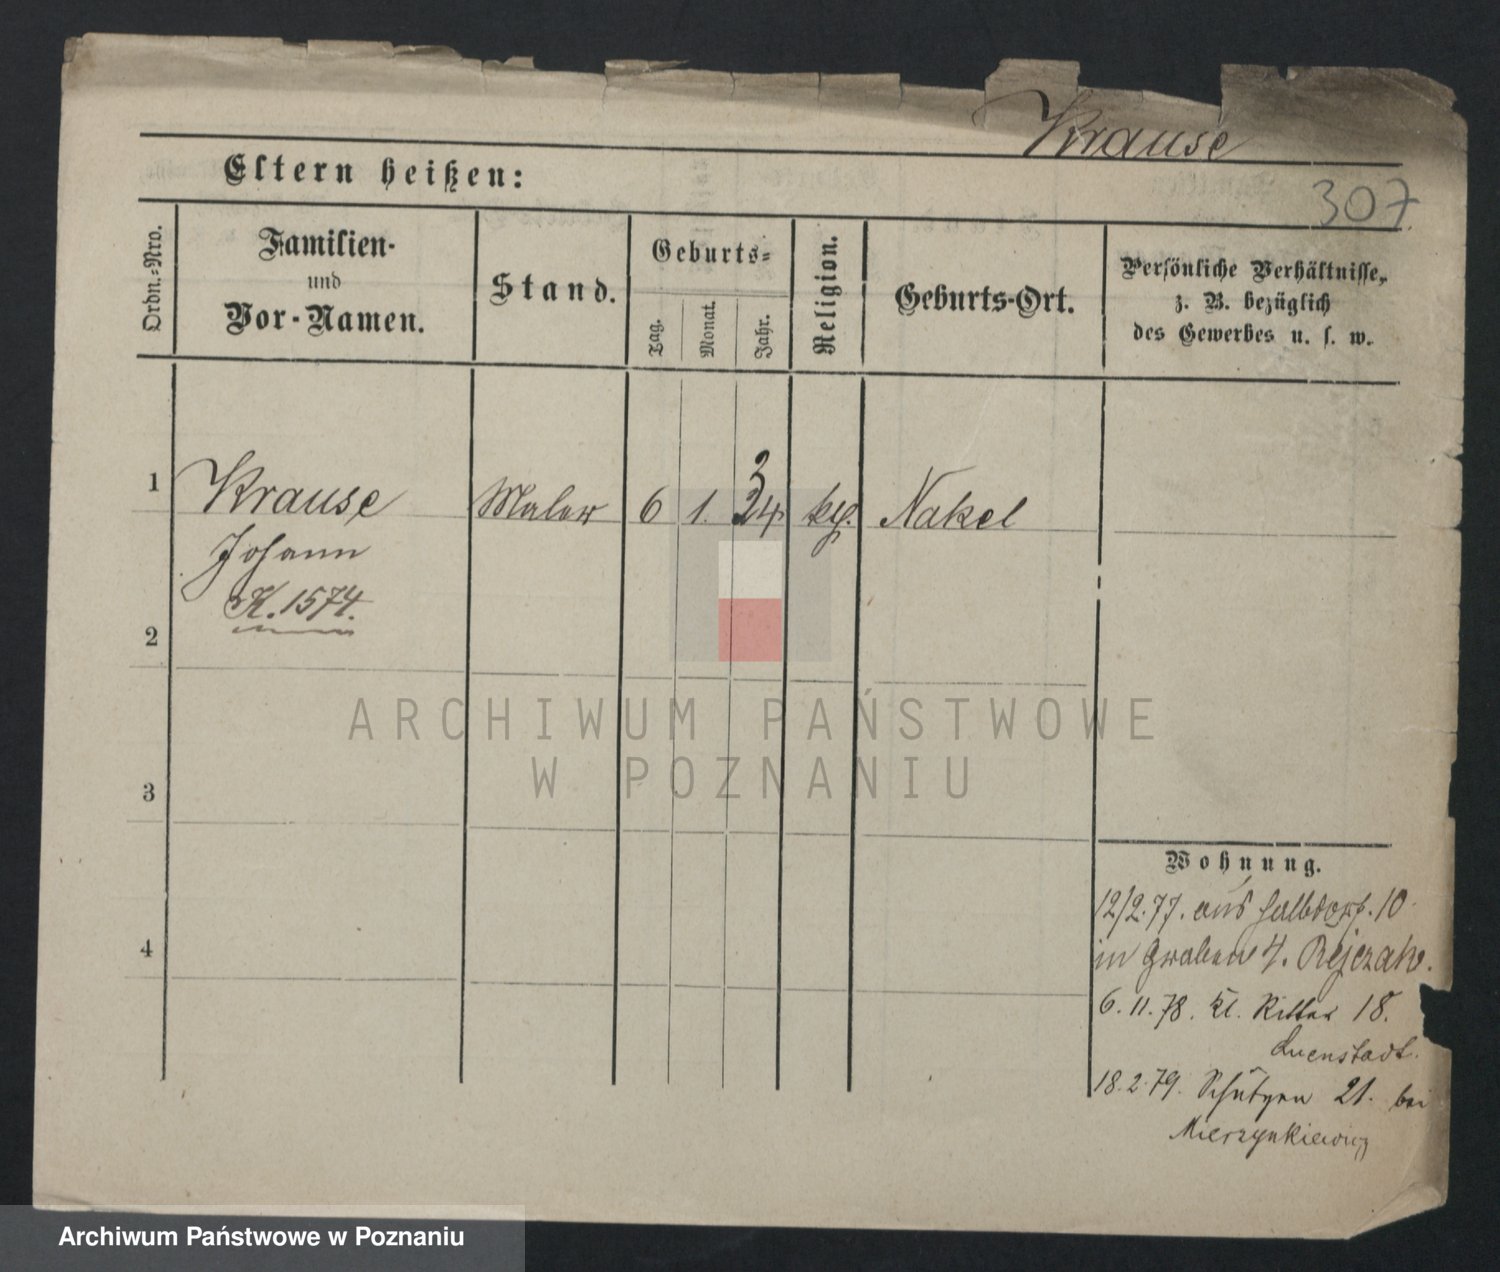 Krause
307.
Eltern heißen:
Ordn.-Nro.
Familien-
und
Vor-Namen.
Stand.
Geburts-
Tag.
Monat.
Jahr.
Religion.
Geburts-Ort.
Persönliche Verhältnisse,
z. B. bezüglich
des Gewerbes u. s. w.
1
Krause Maler 6 1. 24 3 Nakel
Johann
K. 1574.
2
3
4
ARCHIWUM PAŃSTWOWE
W POZNANIU
Wohnung.
12/2.77. aus Halbdorf. 10
in Graben 4.
6. 11. 78. kl. Ritter 18.
18. 2. 79. Schützen 21. bei
Mierzynkiewicz
Archiwum Państwowe w Poznaniu